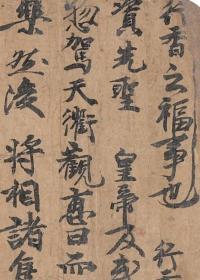 行香之福事也 行
賓先聖 皇帝及
惣駕天衢觀 日而
樂然後 將相諸